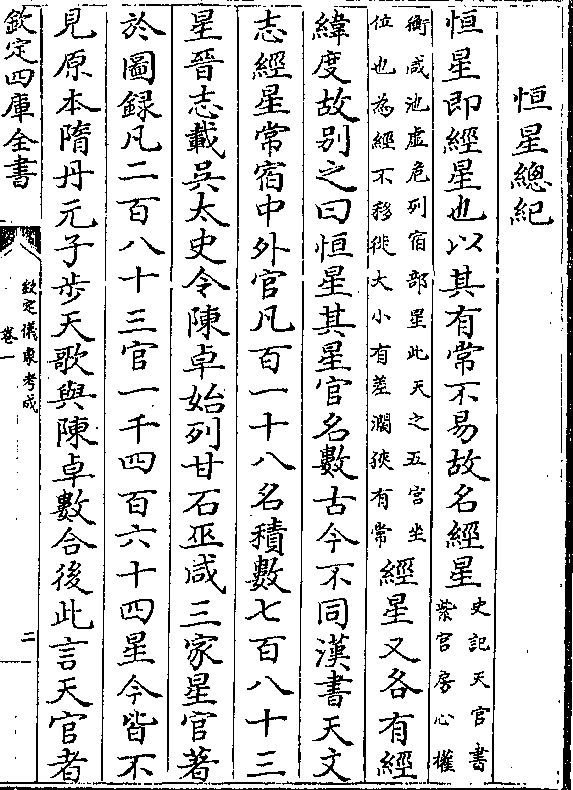 恒星總紀
恒星即經星也以其有常不易故名經星史記天官書紫宫房心權
衡咸池虚危列宿部星此天之五宫坐位也為經不移徙大小有差濶狹有常經星又各有經
緯度故别之曰恒星其星官名數古今不同漢書天文
志經星常宿中外官凡百一十八名積數七百八十三
星晉志載吳太史令陳卓始列甘石巫咸三家星官著
於圖録凡二百八十三官一千四百六十四星今皆不
見原本隋丹元子步天歌與陳卓數合後此言天官者
欽定四庫全書
欽定儀象考成
卷一
二